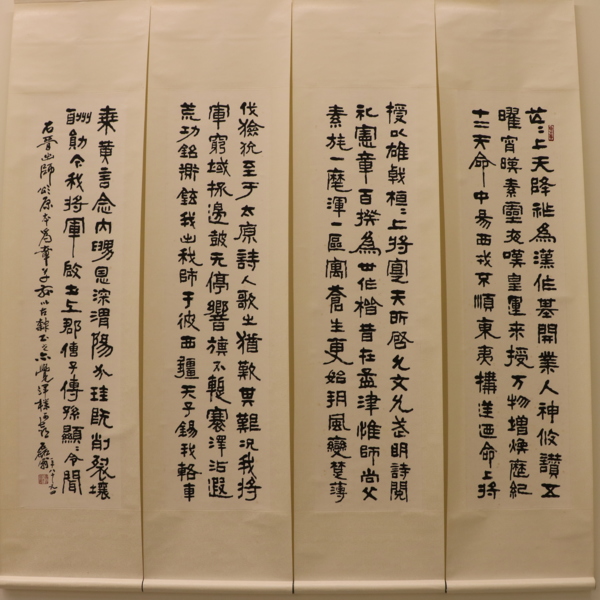 芒〻上天降祚為漢作基開業人神攸讚五
曜宵暎素靈夜嘆皇運來授万物增煥歷紀
十二天命中易西戎不順東夷構逆廼命上將
授以雄戟桓〻上將寔天所啟允文允武明詩閱
礼憲章百揆為世作楷昔在孟津惟師尚父
素旄一麾渾一區寓蒼生更始朔風變楚薄
伐獫狁至于太原詩人歌之猶歎其難況我將
軍窮域極邊鼓无停響旗不蹔褰澤沾遐
荒功銘鼎鉉我出我師于彼西疆天子錫我輅車
乘黃言念內舅恩深渭陽介珪既削裂壤
酬勛今我將軍啟土上郡傳子傳孫顯〻令聞
右晉出師頌原本為章草以古隸書之